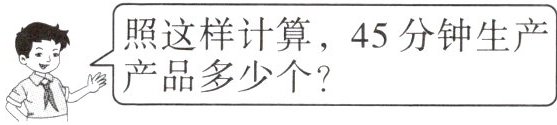 照这样计算，45分钟生产
产品多少个？